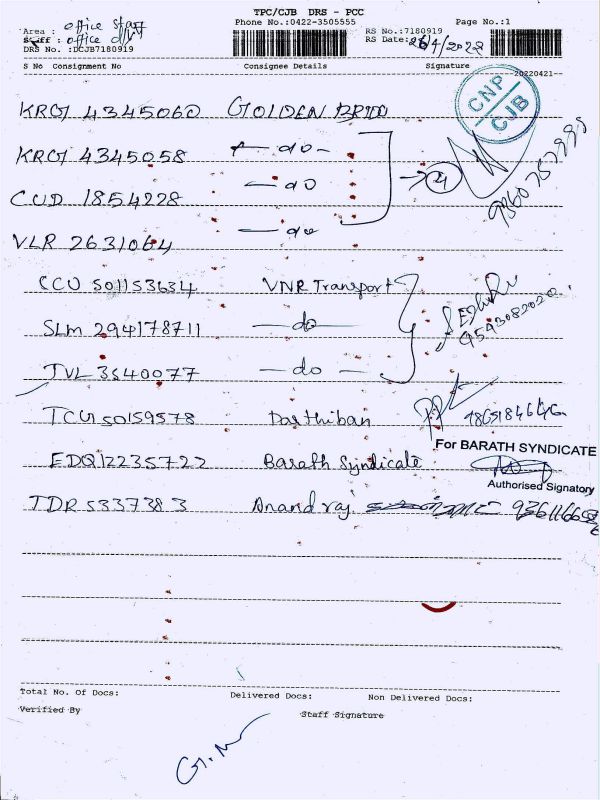 TPC/CJB DRS - PCC
Area : office Staff Phone No.:0422-3505555 RS No.:7180919 Page No.:1
Staff: office RS Date: 26/4/2022
DRS No. :DCJB7180919
S No Consignment No Consignee Details Signature
20220421
CNP
CJB
KRG 4345060 GOLDEN BRIDD
KRG 4345058 - do - 4
9360757995
CUD 1854228 - do
VLR 2631064 - do
CCU 501153634 VNR Transport
SLM 294178711 - do -
9543082020
TVL 3540077 - do -
TCG 50159578 Parthiban
For BARATH SYNDICATE
EDQ12235722 Barath Syndicate
Authorised Signatory
TDR 5337383 Anand raj
Total No. Of Docs: Delivered Docs: Non Delivered Docs:
Verified By Staff Signature